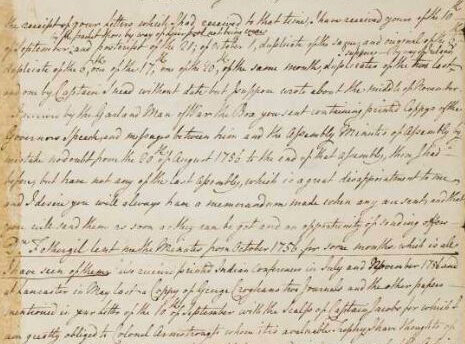 the receipt of your Letters which I had received to that time, I have received yours of the 10th
of September, and postscript of the 21, of October 1, duplicate of the same, and original of the
duplicate of the 6, one of the 17th, one of the 20th, of the same month, duplicates of the two last
and one by Captain Snead without date but suppose wrote about the middle of November
by the Garland Man of War the Box you sent containing printed Copys of the
Governors Speech, and messages between him and the Assembly Minutes of Assembly by
mistake no doubt from the 20th of August 1755 to the end of that Assembly, them I had
before, but have not any of the last Assembly, which is a great disappointment to me
and I desire you will always have a memorandum made when any are sent, and that
you will send them as soon as they can be got and an opportunity of sending offers
Dr Fothergil lent me the Minutes from October 1755 for some months which is all
I have seen of them received printed Indian Conferences in July and November 1756 and
at Lancaster in May last a Copy of George Croghans two Journals and the other papers
mentioned in your letter of the 10th of September with the Scalp of Captain Jacobs for which I
am greatly obliged to Colonel Armstrong trophy I have thoughts of